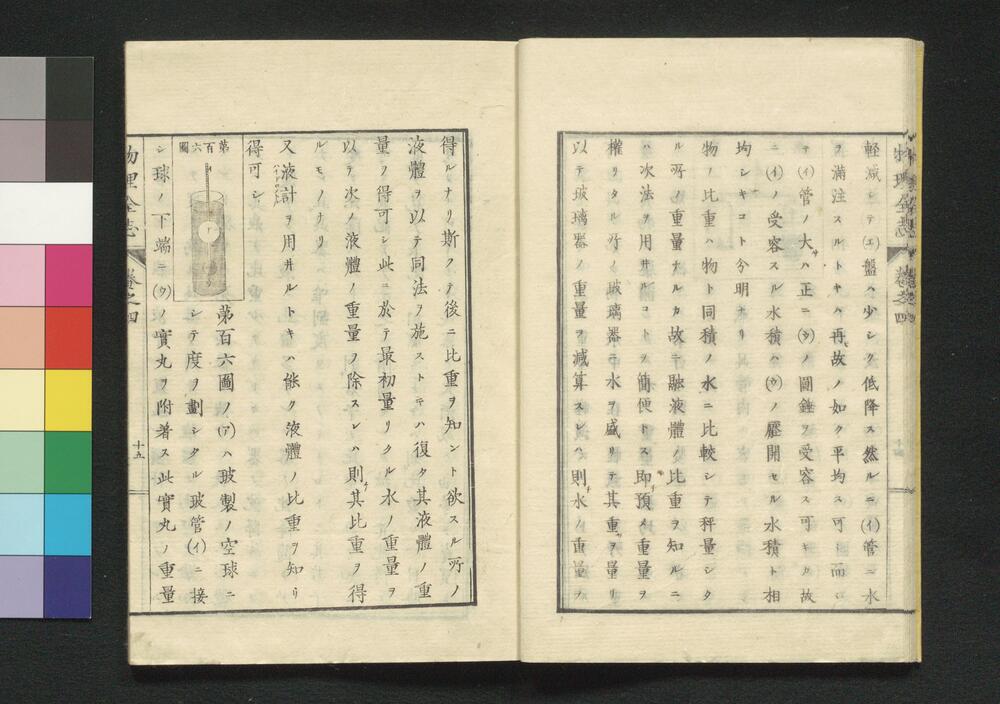 軽減シテ(エ)盤ハ少シク低降ス然ルニ(イ)管ニ水
ヲ満注スルトキハ再故ノ如ク平均ス可シ而シ
テ(イ)管ノ大サハ正ニ(ウ)ノ圓錘ヲ受容ス可キカ故
ニ(イ)ノ受容スル水積ハ(ウ)ノ壓開セル水積ト相
均シキコト分明ナリ
物ノ比重ハ物ト同積ノ水ニ比較シテ秤量シタ
ル所ノ重量ナルカ故ニ融液體ノ比重ヲ知ルニ
ハ次法ヲ用井ルコトヲ簡便トス即預メ重量ヲ
權リタル所ノ玻璃器ニ水ヲ盛リテ其重サヲ量リ
以テ玻璃器ノ重量ヲ減算スレハ則チ水ノ重量ヲ
得ルナリ斯クテ後ニ比重ヲ知ント欲スル所ノ
液體ヲ以テ同法ヲ施ストキハ復タ其液體ノ重
量ヲ得可シ此ニ於テ最初量リタル水ノ重量ヲ
以テ次ノ液體ノ重量ヲ除スレハ則チ其比重ヲ得
ルモノナリ
又液計ヲ用井ルトキハ能ク液體ノ比重ヲ知リ
得可シ
第百六圖
第百六圖ノ(ア)ハ玻製ノ空球ニ
シテ度ヲ劃シタル玻管(イ)ニ接
シ球ノ下端ニ(ウ)ノ實丸ヲ附著ス此實丸ノ重量
物理全志
卷之四
十五